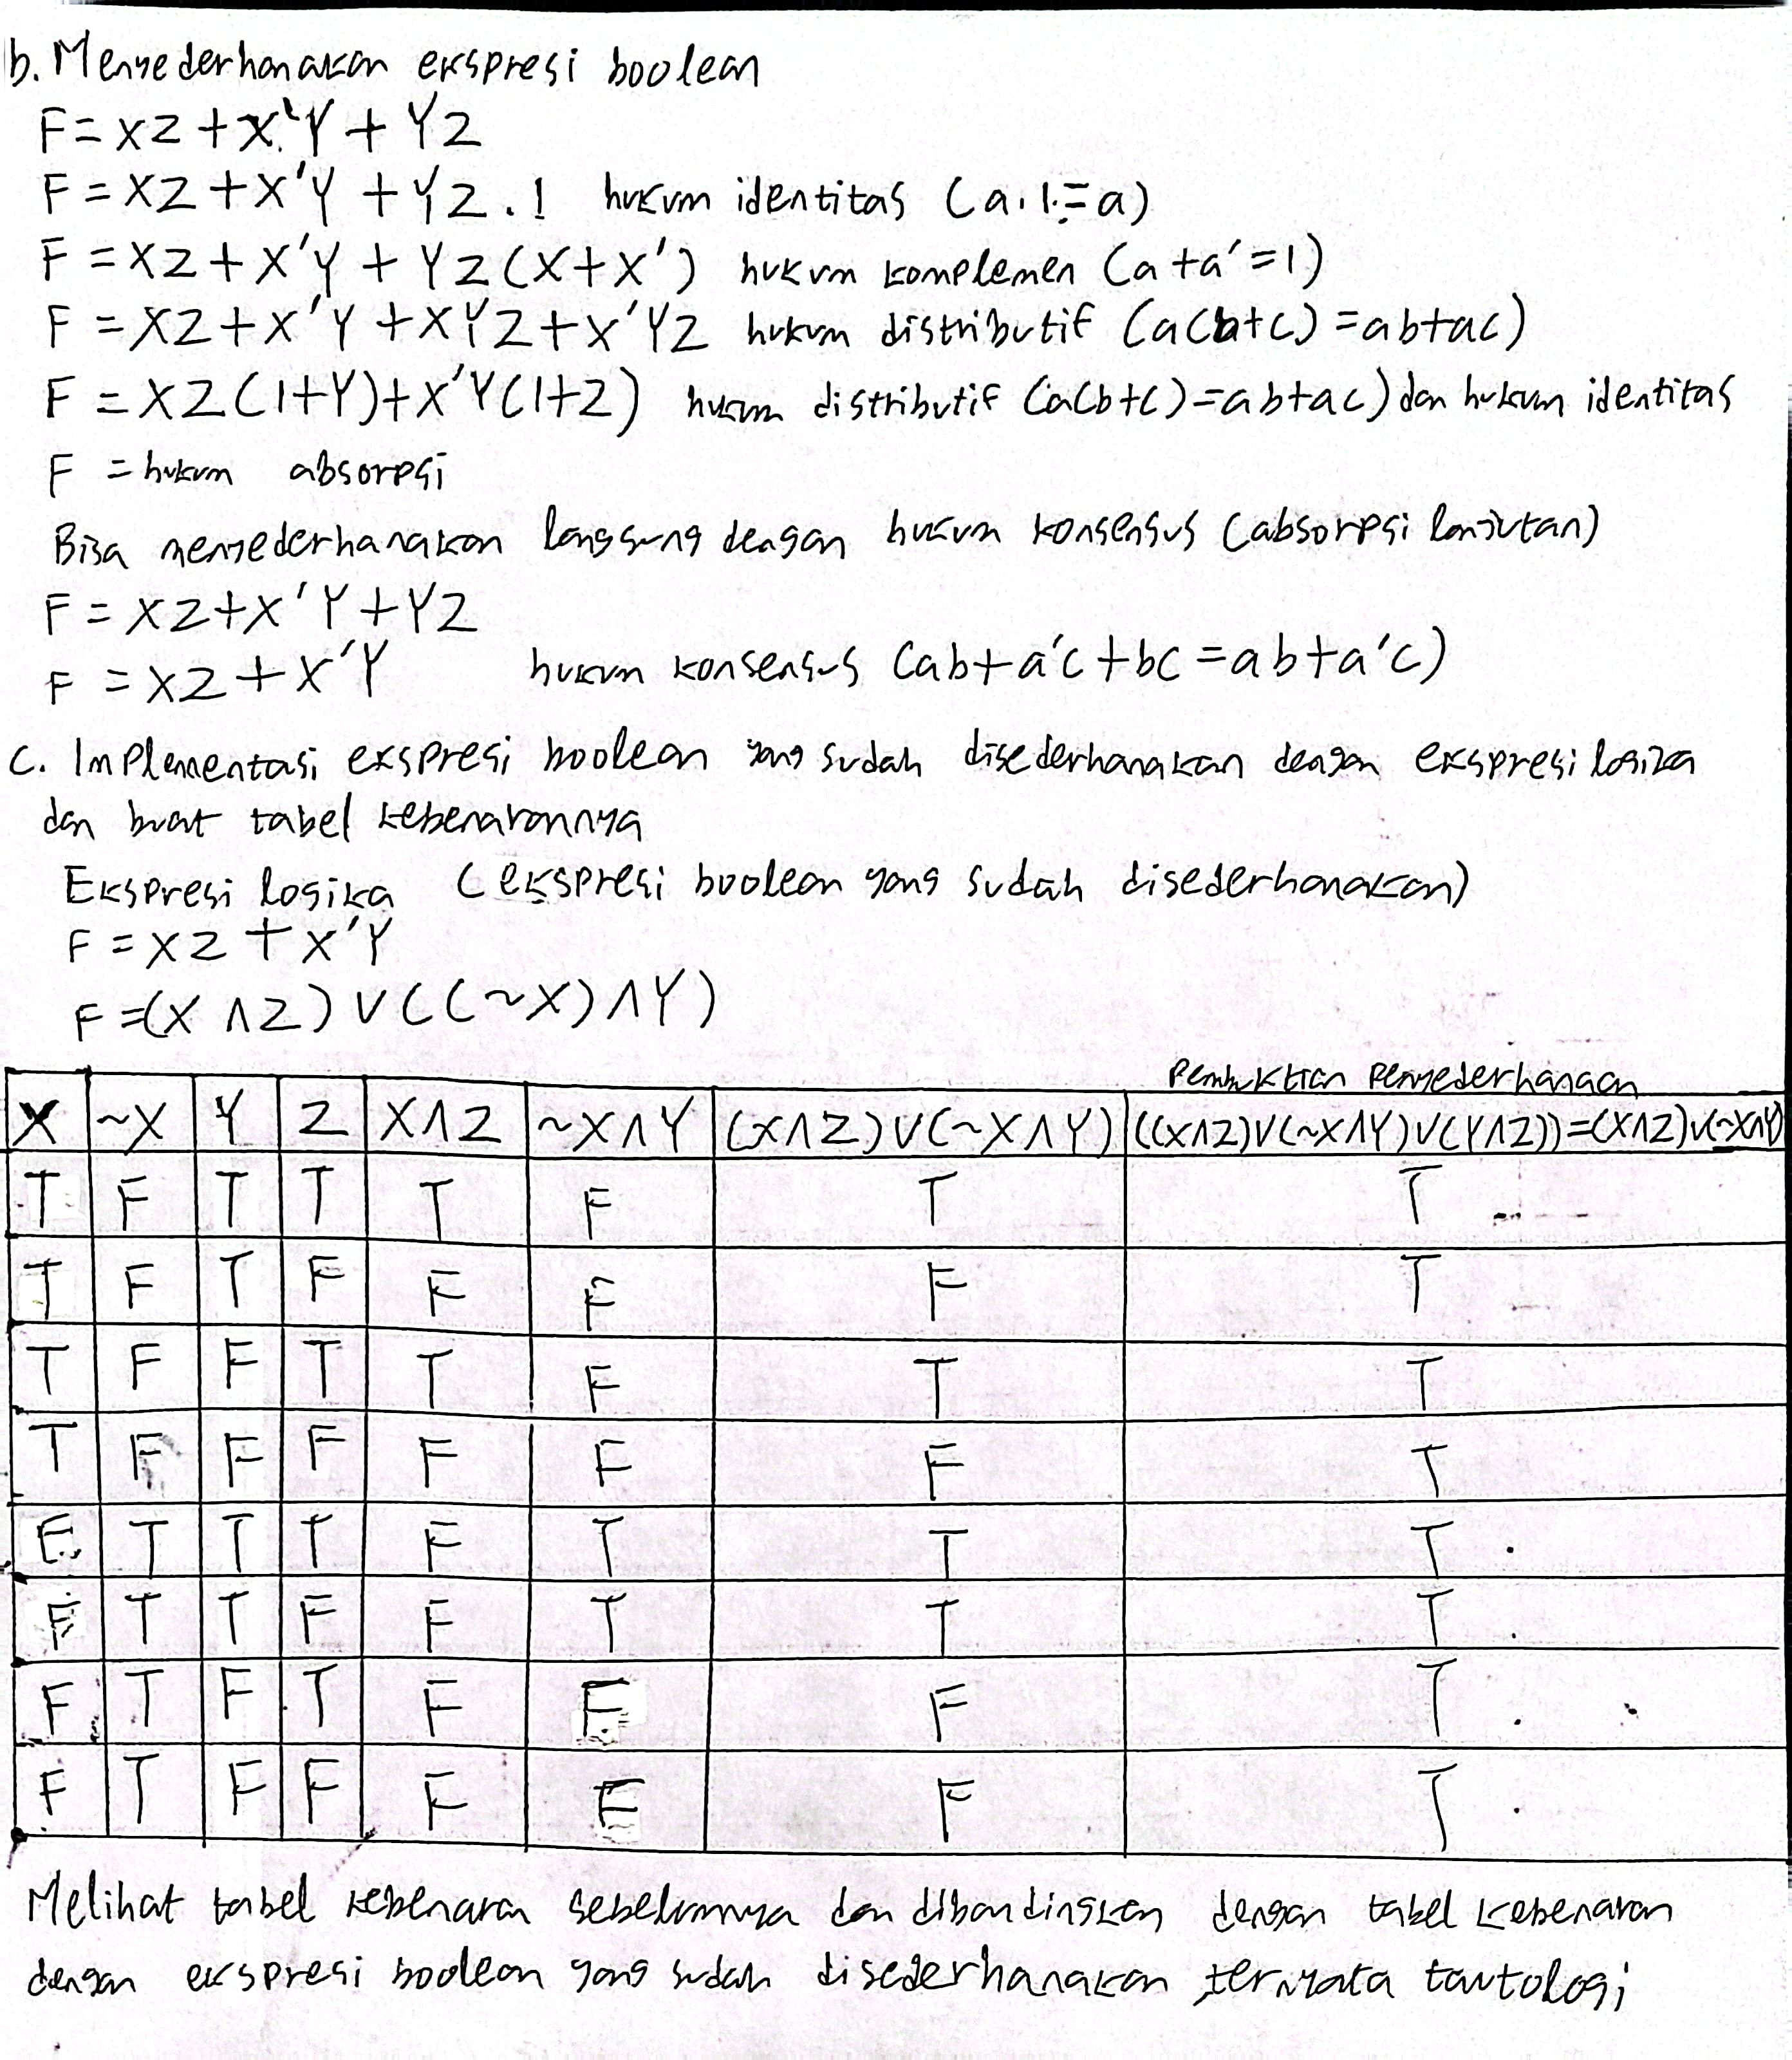 b. Menyederhanakan ekspresi boolean
F = XZ + X'Y + YZ
F = XZ + X'Y + YZ . 1 hukum identitas (a . 1 = a)
F = XZ + X'Y + YZ(X+X') hukum komplemen (a + a' = 1)
F = XZ + X'Y + XYZ + X'YZ hukum distributif (a(b+c) = ab+ac)
F = XZ(1+Y)+X'Y(1+Z) hukum distributif (a(b+c)=ab+ac) dan hukum identitas
F = hukum absorpsi
Bisa menyederhanakan langsung dengan hukum konsensus (absorpsi lanjutan)
F = XZ+X'Y+YZ
F = XZ+X'Y hukum konsensus (ab+a'c+bc = ab+a'c)
c. Implementasi ekspresi boolean yang sudah disederhanakan dengan ekspresi logika
dan buat tabel kebenarannya
Ekspresi logika (ekspresi boolean yang sudah disederhanakan)
F = XZ + X'Y
F = (X ∧ Z) ∨ ((~X) ∧ Y)
Pembuktian Penyederhanaan
X ~X Y Z X∧Z ~X∧Y (X∧Z)∨(~X∧Y) ((X∧Z)∨(~X∧Y)∨(Y∧Z))=(X∧Z)∨(~X∧Y)
T F T T T F T T
T F T F F F F T
T F F T T F T T
T F F F F F F T
F T T T F T T T
F T T F F T T T
F T F T F F F T
F T F F F F F T
Melihat tabel kebenaran sebelumnya dan dibandingkan dengan tabel kebenaran
dengan ekspresi boolean yang sudah disederhanakan ternyata tautologi